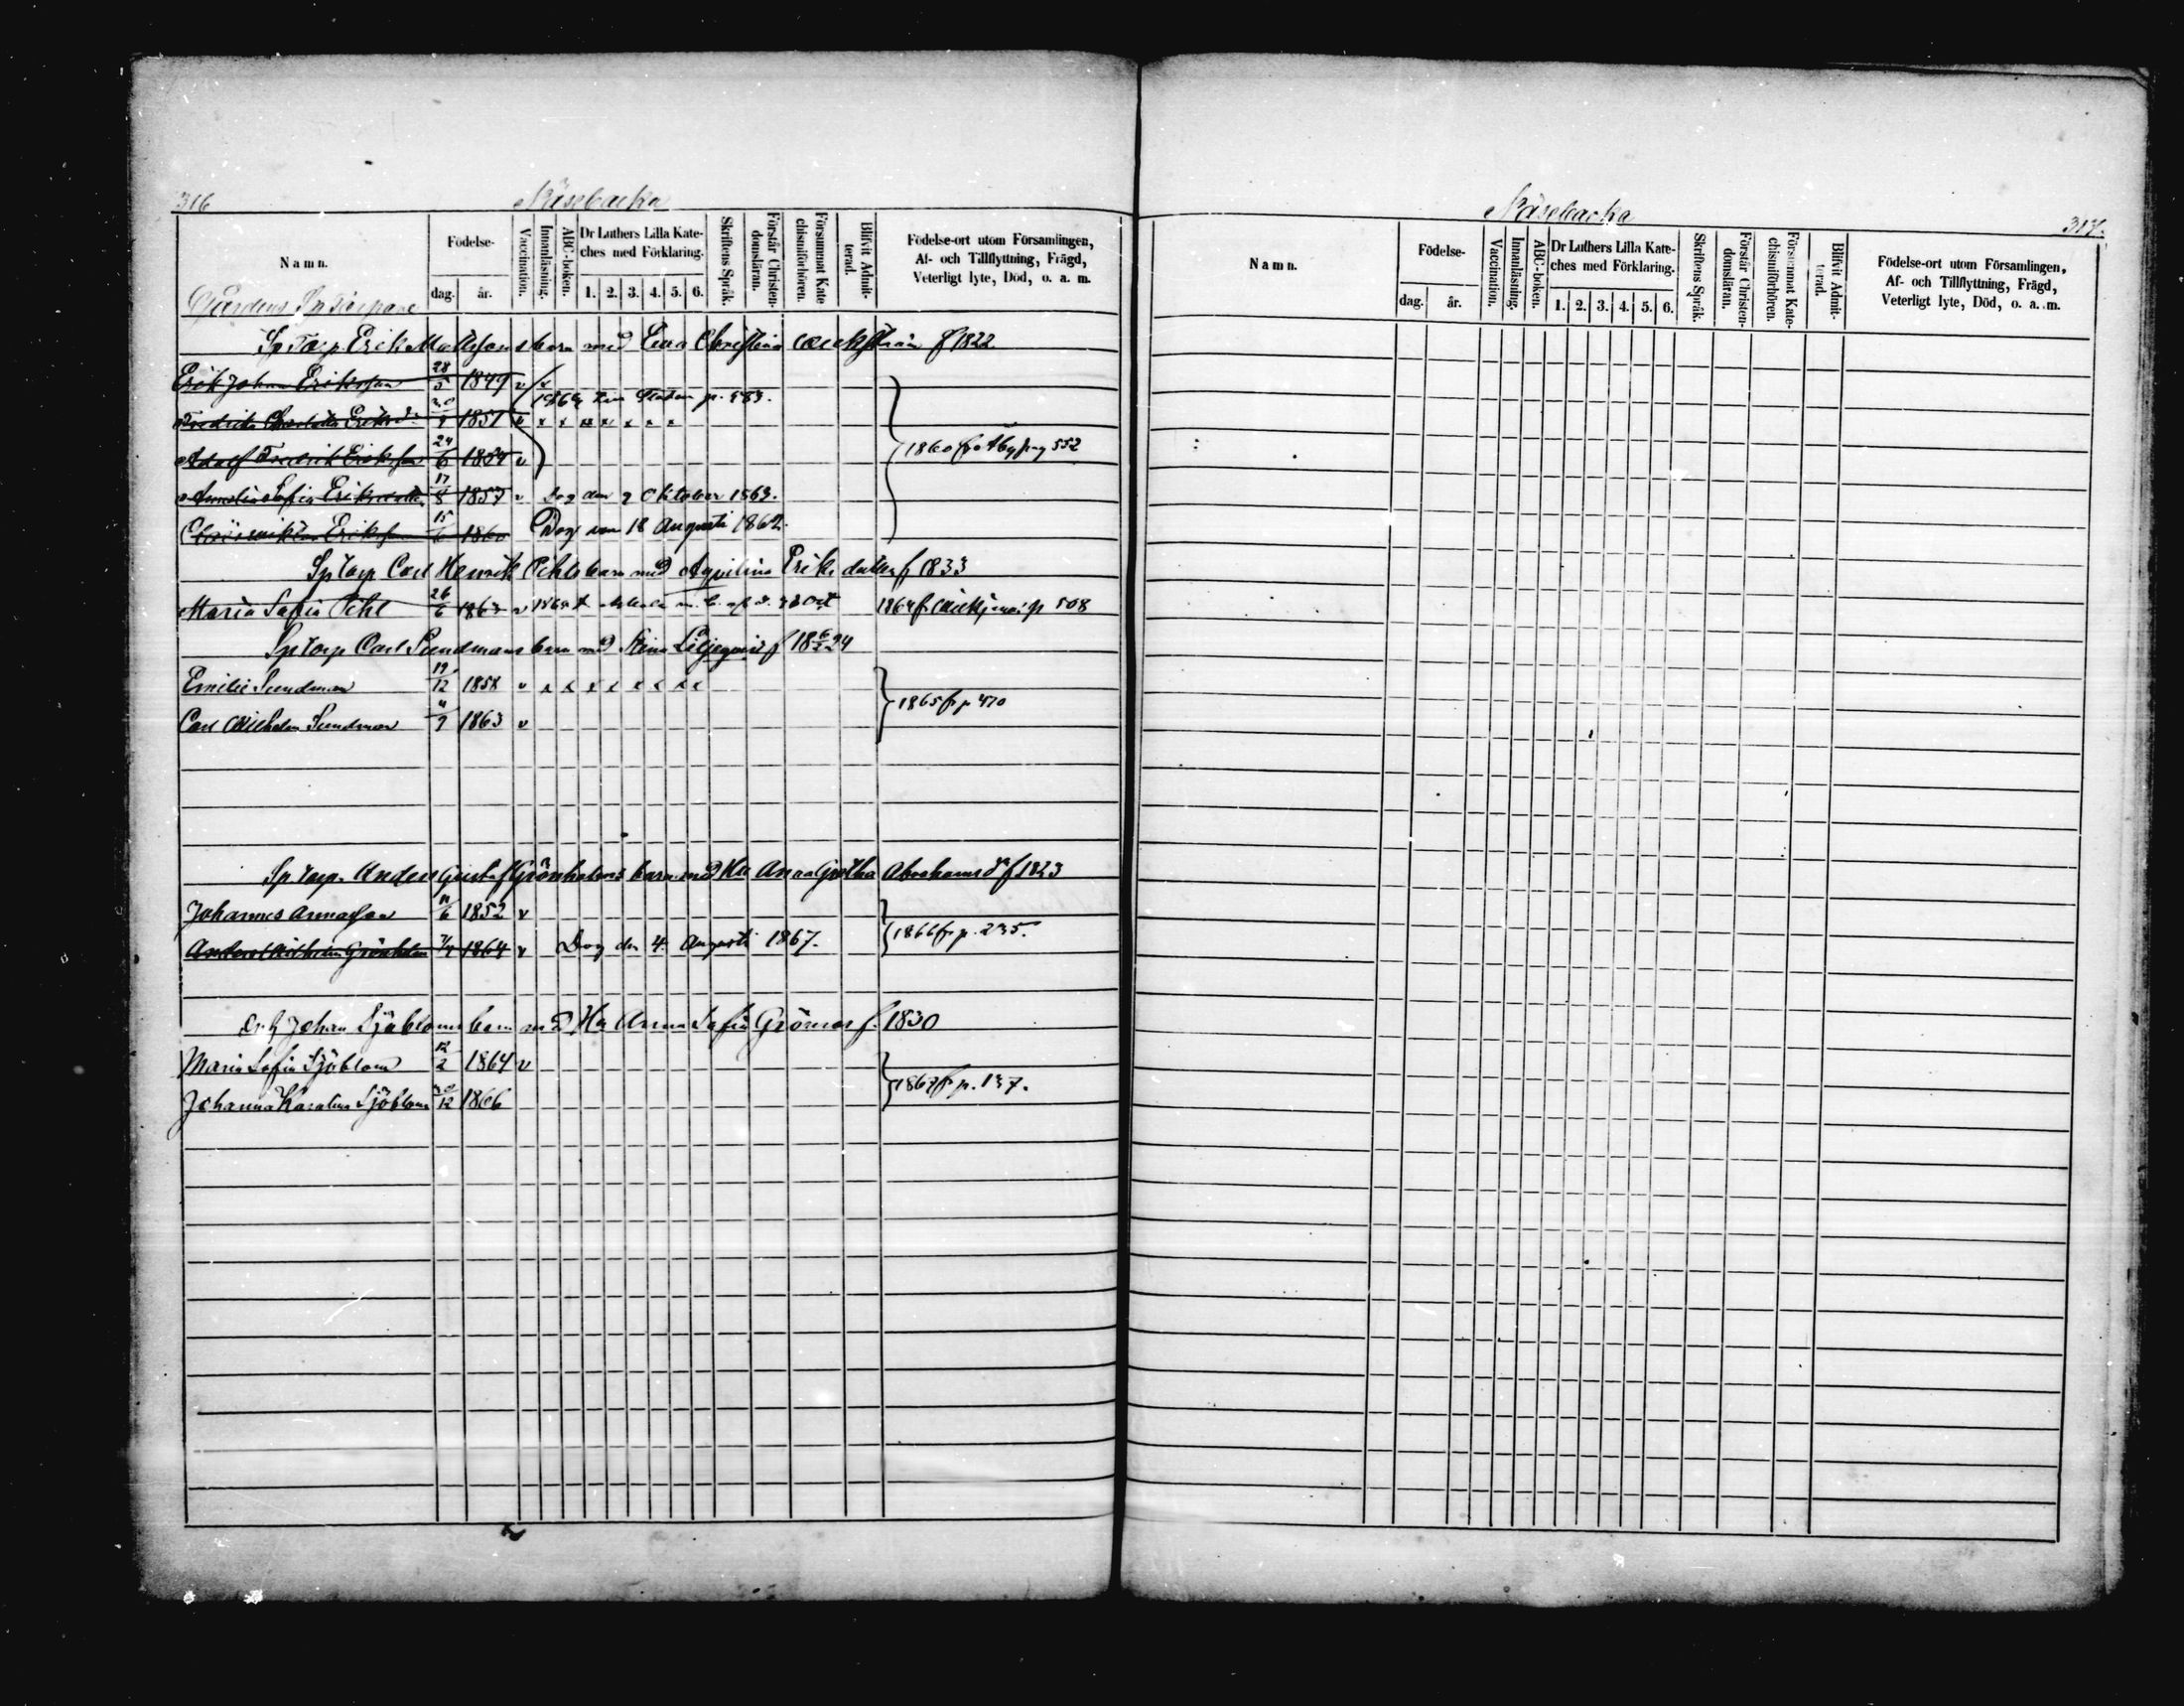 316
Näsebacka
Namn.
Födelse-
dag.
år.
Vaccination.
Innanläsning.
ABC-boken.
Dr Luthers Lilla Kate-
ches med Förklaring.
1. 2. 3. 4. 5. 6.
Skriftens Språk.
Förstår Christen-
domsläran.
Försummat Kate
chismiförhören.
Blifvit Admit-
terad.
Födelse-ort utom Församlingen,
Af- och Tillflyttning, Frägd,
Veterligt lyte, Död, o. a. m.
Gårdens Sp Torpare
Sp Torp Erik Matssons barn med Lena Christina f 1822
Erik Johan Eriksson 28/5 1849 v x
1869 p. 583.
Fredrika Charlotta Eriksd. 1851 v x x x x x x x
Adolf Fredrik Eriksson 24/6 1854 v
1860 fr Åby pag 552
Amalia Sofia Eriksdotter 17/8 1857 v Dog den 9 Oktober 1863.
Eriksson 15/6 1860 Dog den 18 Augusti 1862.
Sp Torp Carl Henrik Pihls barn med Aqvilina Eriksdotter f 1833
Maria Sofia Pihl 26/6 1863 v 1864 fr p 508
Sp Torp Carl Sundmans barn med Stina Liljeqvist f 18 6/2 24
Emilie Sundman 19/12 1858 v x x x x x x x x
1865 fr p 470
Carl Wilhelm Sundman 1863 v
Sp Torp. Anders Gustaf Grönholms barn med Hu Anna Gretha Abrahamsdr f 1823
Johannes Annasson 11/6 1852 v
1866 fr p. 235.
Anders Wilhelm Grönholm 7/4 1864 v Dog den 4 Augusti 1867.
Johan Sjöbloms barn med Hu Anna Sofia Grönros f. 1830
Maria Sofia Sjöblom 12/2 1864 v
1867 fr p. 137.
Johanna Karolina Sjöblom 30/12 1866
Näsebacka
317.
Namn.
Födelse-
dag.
år.
Vaccination.
Innanläsning.
ABC-boken.
Dr Luthers Lilla Kate-
ches med Förklaring.
1. 2. 3. 4. 5. 6.
Skriftens Språk.
Förstår Christen-
domsläran.
Försummat Kate-
chismiförhören.
Blifvit Admit-
terad.
Födelse-ort utom Församlingen,
Af- och Tillflyttning, Frägd,
Veterligt lyte, Död, o. a. m.